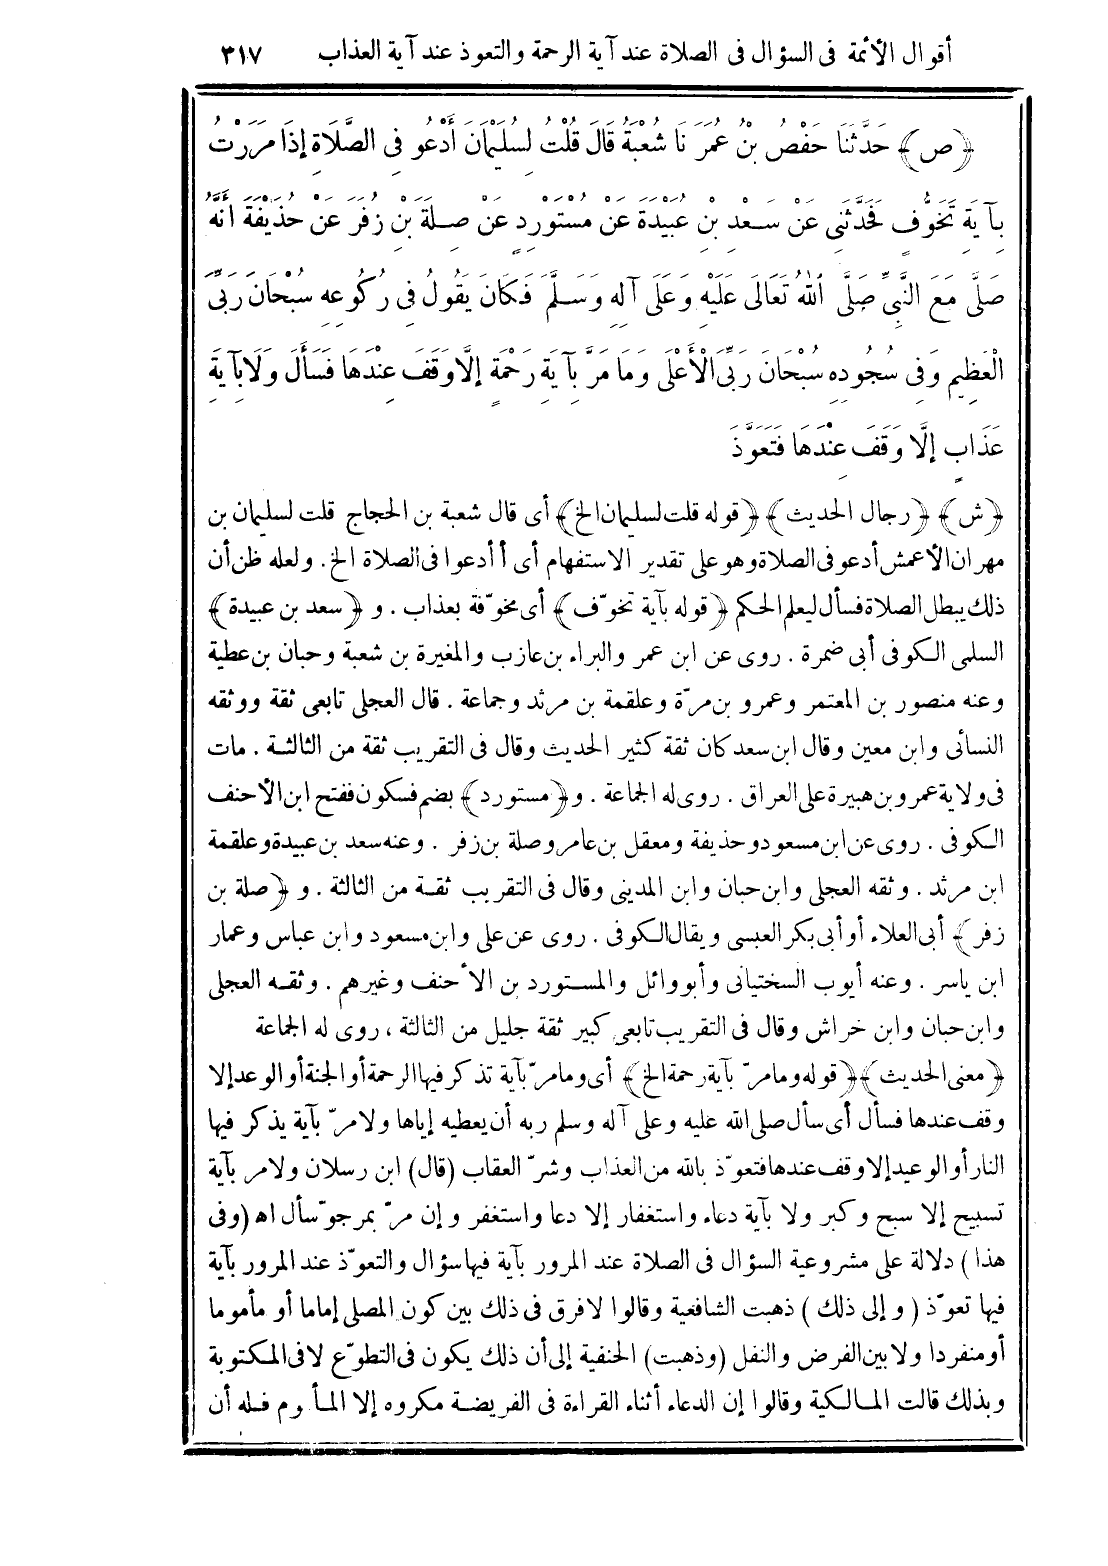 أقوال الأئمة فى السؤال فى الصلاة عند آية الرحمة والتعوذ عند آية العذاب ٣١٧
﴿ص﴾ حَدَّثَنَا حَفْصُ بْنُ عُمَرَ نَا شُعْبَةُ قَالَ قُلْتُ لِسُلَيْمَانَ أَدْعُو فِى الصَّلَاةِ إِذَا مَرَرْتُ
بِآيَةِ تَخَوُّفٍ فَحَدَّثَنِى عَنْ سَعْدِ بْنِ عُبَيْدَةَ عَنْ مُسْتَوْرِدٍ عَنْ صِلَةَ بْنِ زُفَرَ عَنْ حُذَيْفَةَ أَنَّهُ
صَلَّى مَعَ النَّبِىِّ صَلَّى اللهُ تَعَالَى عَلَيْهِ وَعَلَى آلِهِ وَسَلَّمَ فَكَانَ يَقُولُ فِى رُكُوعِهِ سُبْحَانَ رَبِّىَ
الْعَظِيمِ وَفِى سُجُودِهِ سُبْحَانَ رَبِّىَ الْأَعْلَى وَمَا مَرَّ بِآيَةِ رَحْمَةٍ إِلَّا وَقَفَ عِنْدَهَا فَسَأَلَ وَلَا بِآيَةِ
عَذَابٍ إِلَّا وَقَفَ عِنْدَهَا فَتَعَوَّذَ
﴿ش﴾ ﴿رجال الحديث﴾ ﴿قوله قلت لسليمان الخ﴾ أى قال شعبة بن الحجاج قلت لسليمان بن
مهران الأعمش أدعو فى الصلاة وهو على تقدير الاستفهام أى أأدعوا فى الصلاة الخ . ولعله ظن أن
ذلك يبطل الصلاة فسأل ليعلم الحكم ﴿قوله بآية تخوّف﴾ أى مخوّفة بعذاب . و ﴿سعد بن عبيدة﴾
السلمى الكوفى أبى ضمرة . روى عن ابن عمر والبراء بن عازب والمغيرة بن شعبة وحبان بن عطية
وعنه منصور بن المعتمر وعمرو بن مرّة وعلقمة بن مرثد وجماعة . قال العجلى تابعى ثقة ووثقه
النسائى وابن معين وقال ابن سعد كان ثقة كثير الحديث وقال فى التقريب ثقة من الثالثة . مات
فى ولاية عمرو بن هبيرة على العراق . روى له الجماعة . و﴿مستورد﴾ بضم فسكون ففتح ابن الأحنف
الكوفى . روى عن ابن مسعود وحذيفة ومعقل بن عامر وصلة بن زفر . وعنه سعد بن عبيدة وعلقمة
ابن مرثد . وثقه العجلى وابن حبان وابن المدينى وقال فى التقريب ثقة من الثالثة . و ﴿صلة بن
زفر﴾ أبى العلاء أو أبى بكر العبسى ويقال الكوفى . روى عن على وابن مسعود وابن عباس وعمار
ابن ياسر . وعنه أيوب السختيانى وأبو وائل والمستورد بن الأحنف وغيرهم . وثقه العجلى
وابن حبان وابن خراش وقال فى التقريب تابعى كبير ثقة جليل من الثالثة ، روى له الجماعة
﴿معنى الحديث﴾ ﴿قوله وما مرّ بآية رحمة الخ﴾ أى وما مرّ بآية تذكر فيها الرحمة أو الجنة أو الوعد إلا
وقف عندها فسأل أى سأل صلى الله عليه وعلى آله وسلم ربه أن يعطيه إياها ولا مرّ بآية يذكر فيها
النار أو الوعيد إلا وقف عندها فتعوّذ بالله من العذاب وشرّ العقاب (قال) ابن رسلان ولا مر بآية
تسبيح إلا سبح وكبر ولا بآية دعاء واستغفار إلا دعا واستغفر وإن مرّ بمرجوّ سأل اه (وفى
هذا) دلالة على مشروعية السؤال فى الصلاة عند المرور بآية فيها سؤال والتعوّذ عند المرور بآية
فيها تعوّذ (وإلى ذلك) ذهبت الشافعية وقالوا لا فرق فى ذلك بين كون المصلى إماما أو مأموما
أو منفردا ولا بين الفرض والنفل (وذهبت) الحنفية إلى أن ذلك يكون فى التطوّع لا فى المكتوبة
وبذلك قالت المالكية وقالوا إن الدعاء أثناء القراءة فى الفريضة مكروه إلا المأموم فله أن